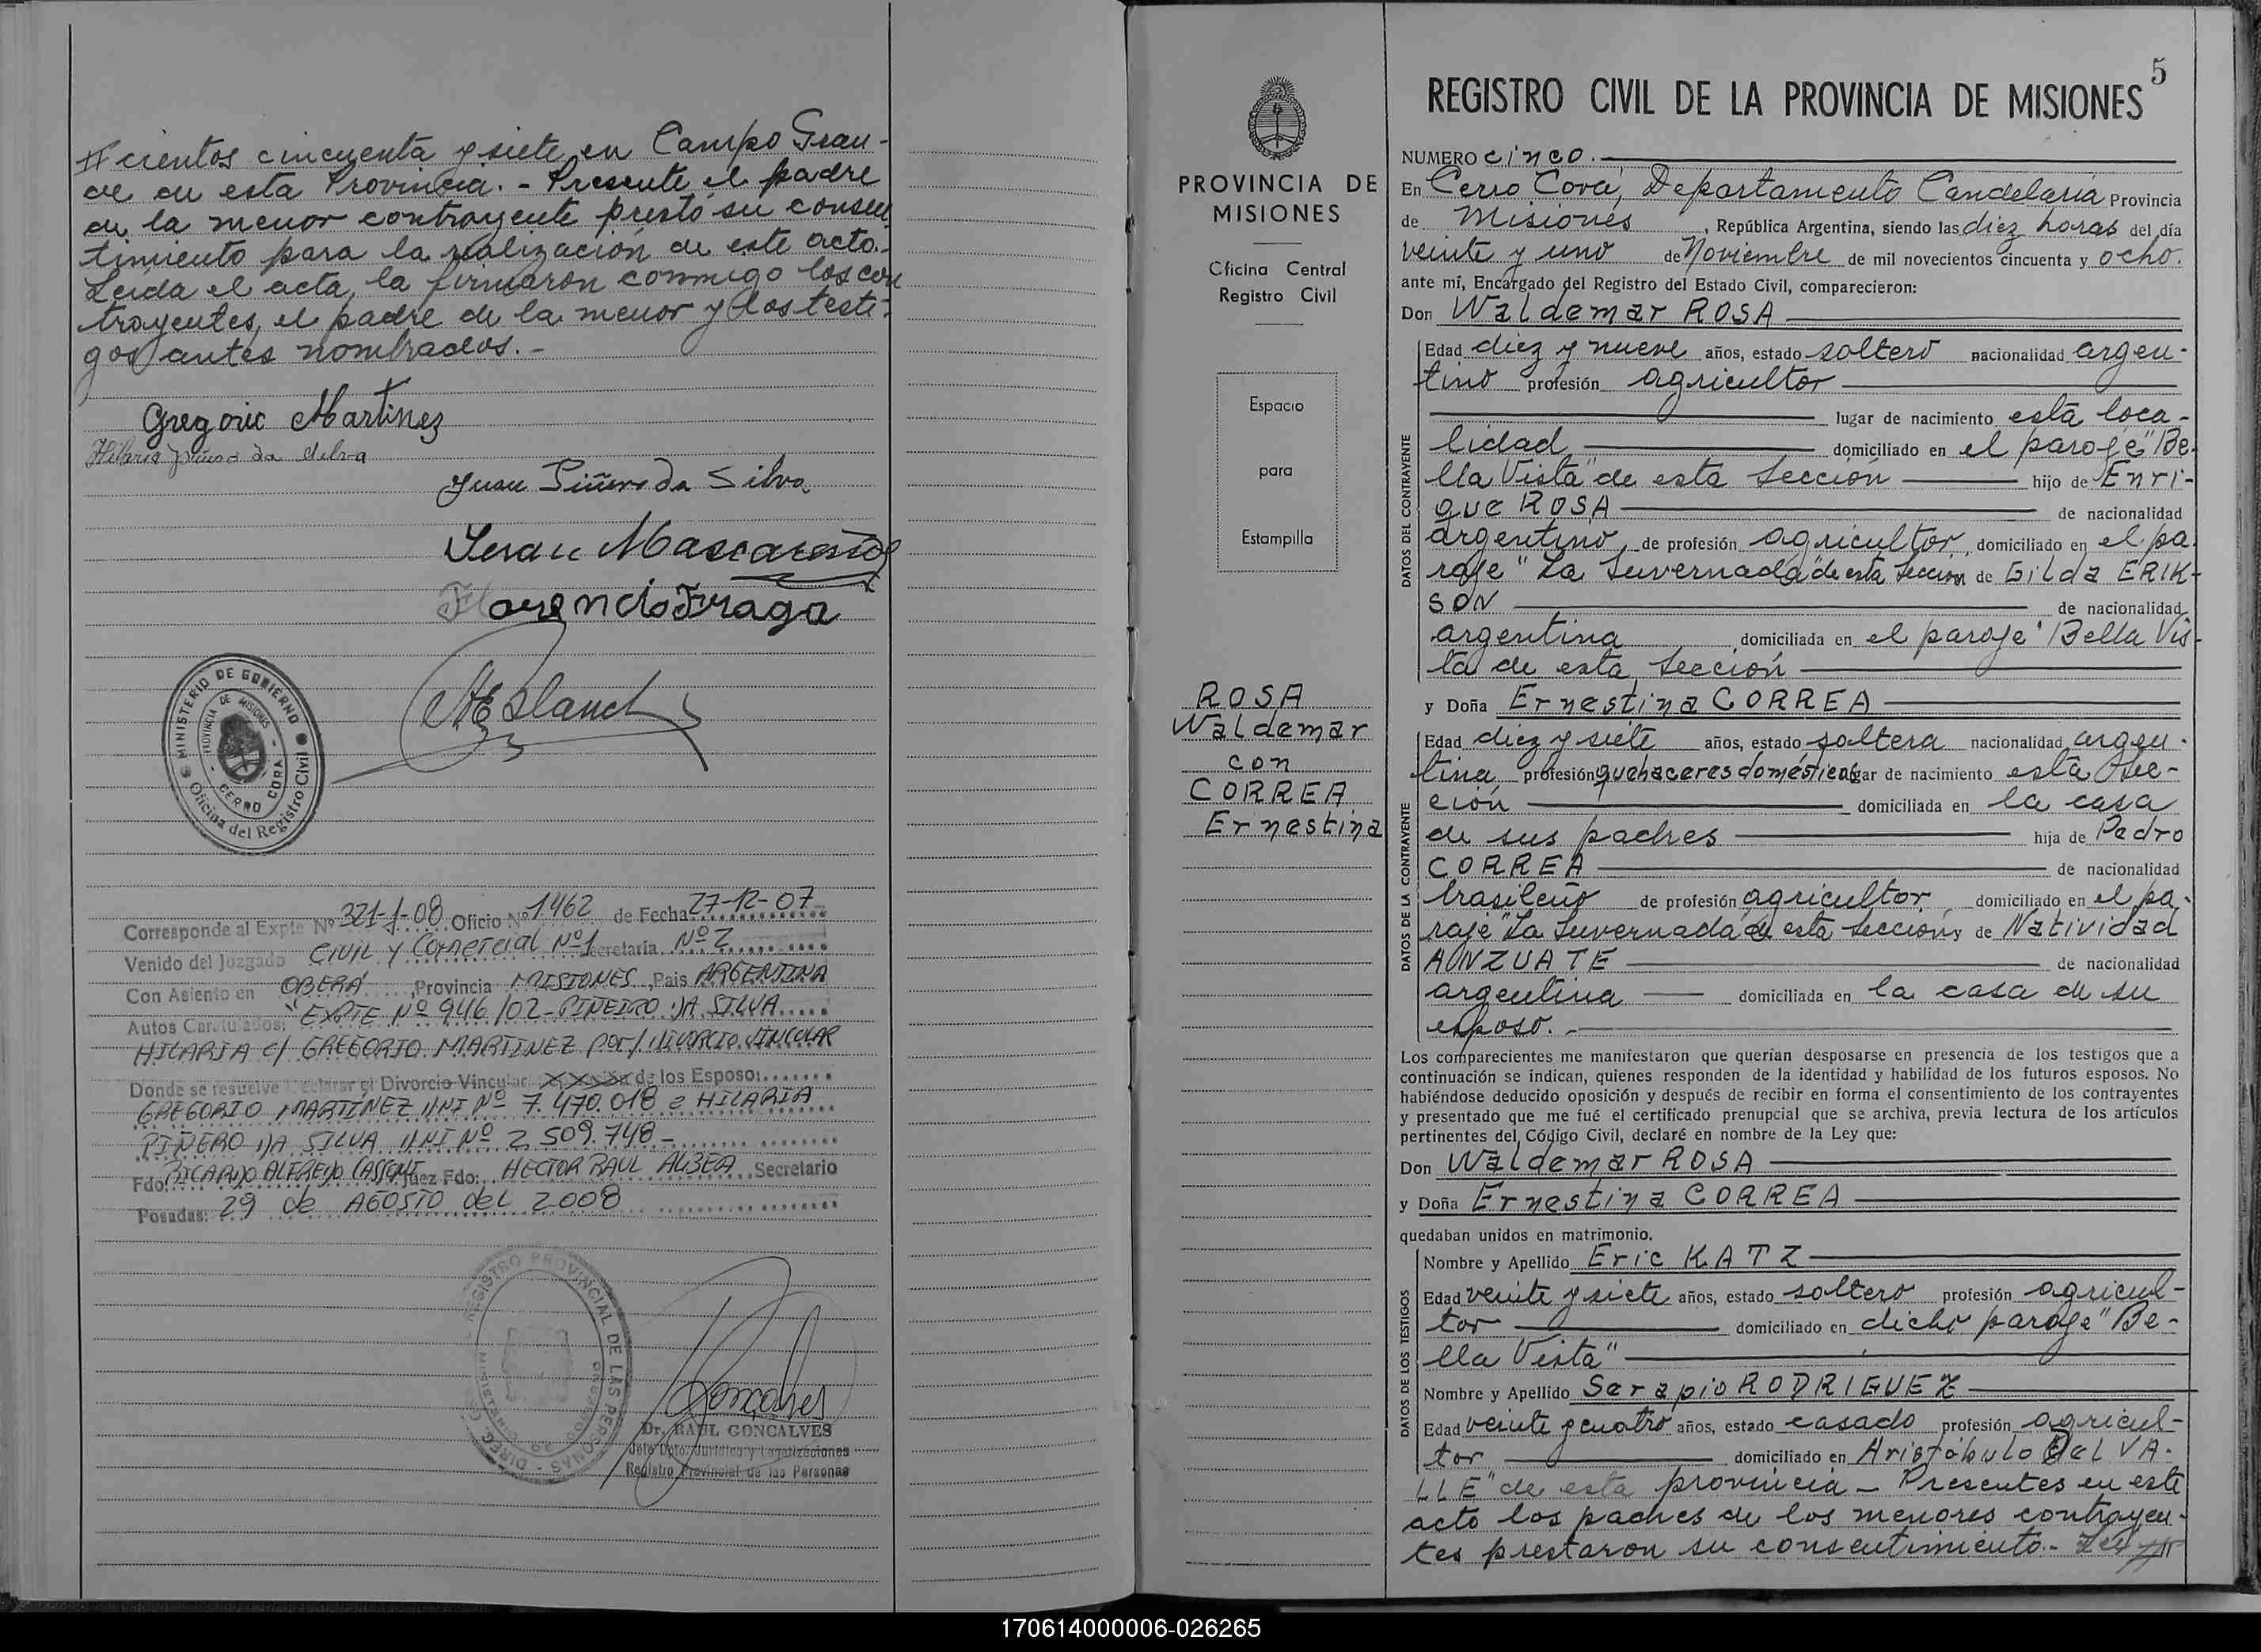 # cientos cincuenta y siete, en Campo Gran-
de de esta Provincia. - Presente el padre
de la menor contrayente prestó su consen
timiento para la realización de este acto.-
Leida el acta, la firmaron conmigo los con
trayentes, el padre de la menor y los testi-
gos antes nombrados.-
Gregorio Martinez
Hilaria Piñero da Silva
Juan Piñero da Silva
Florencio Fraga
MINISTERIO DE GOBIERNO
PROVINCIA DE MISIONES
CERRO CORA
Oficina del Registro Civil
Corresponde al Expte Nº 321-1-08 Oficio Nº 1462 de Fecha 27-12-07
Venido del Juzgado CIVIL Y Comercial Nº1 Secretaría Nº 2
Con Asiento en OBERÁ, Provincia MISIONES, Pais ARGENTINA
Autos Caratulados: "EXPTE Nº 946/02 - PIÑEIRO DA SILVA
HILARIA c/ GREGORIO MARTINEZ por/ DIVORCIO VINCULAR
Donde se resuelve Declarar el Divorcio Vincular de los Esposos:
GREGORIO MARTINEZ DNI Nº 7.470.018 e HILARIA
PIÑERO DA SILVA DNI Nº 2.509.748-
Fdo: RICARDO ALFREDO Juez Fdo: HECTOR RAUL Secretario
Posadas: 29 de AGOSTO del 2008
REGISTRO PROVINCIAL DE LAS PERSONAS
Gonçalves
Dr. RAUL GONCALVES
Jefe Dpto. Jurídico y Legalizaciones
Registro Provincial de las Personas
PROVINCIA DE
MISIONES
Oficina Central
Registro Civil
Espacio
para
Estampilla
ROSA
Waldemar
con
CORREA
Ernestina
5
REGISTRO CIVIL DE LA PROVINCIA DE MISIONES
NUMERO cinco.
En Cerro Corá, Departamento Candelaria Provincia
de Misiones, República Argentina, siendo las diez horas del día
veinte y uno de Noviembre de mil novecientos cincuenta y ocho.
ante mí, Encargado del Registro del Estado Civil, comparecieron:
Don Waldemar ROSA
DATOS DEL CONTRAYENTE
Edad diez y nueve años, estado soltero nacionalidad argen-
tino profesión agricultor
lugar de nacimiento esta loca-
lidad domiciliado en el paraje "Be-
lla Vista" de esta Sección hijo de Enri-
que ROSA de nacionalidad
argentino, de profesión agricultor, domiciliado en el pa-
raje "La Invernada" de esta Sección de Gilda ERIK-
SON de nacionalidad
argentina domiciliada en el paraje "Bella Vis-
ta de esta Sección
y Doña Ernestina CORREA
DATOS DE LA CONTRAYENTE
Edad diez y siete años, estado soltera nacionalidad argen-
tina profesión quehaceres domésticos lugar de nacimiento esta Sec-
ción domiciliada en la casa
de sus padres hija de Pedro
CORREA de nacionalidad
brasileño de profesión agricultor domiciliado en el pa-
raje "La Invernada" de esta Sección y de Natividad
AUNZUATE de nacionalidad
argentina domiciliada en la casa de su
esposo.-
Los comparecientes me manifestaron que querían desposarse en presencia de los testigos que a
continuación se indican, quienes responden de la identidad y habilidad de los futuros esposos. No
habiéndose deducido oposición y después de recibir en forma el consentimiento de los contrayentes
y presentado que me fué el certificado prenupcial que se archiva, previa lectura de los artículos
pertinentes del Código Civil, declaré en nombre de la Ley que:
Don Waldemar ROSA
y Doña Ernestina CORREA
quedaban unidos en matrimonio.
DATOS DE LOS TESTIGOS
Nombre y Apellido Eric KATZ
Edad veinte y siete años, estado soltero profesión agricul-
tor domiciliado en dicho paraje "Be-
lla Vista"
Nombre y Apellido Serapio RODRIGUEZ
Edad veinte y cuatro años, estado casado profesión agricul-
tor domiciliado en Aristóbulo Del VA-
LLE" de esta provincia - Presentes en este
acto los padres de los menores contrayen-
tes prestaron su consentimiento.-
170614000006-026265